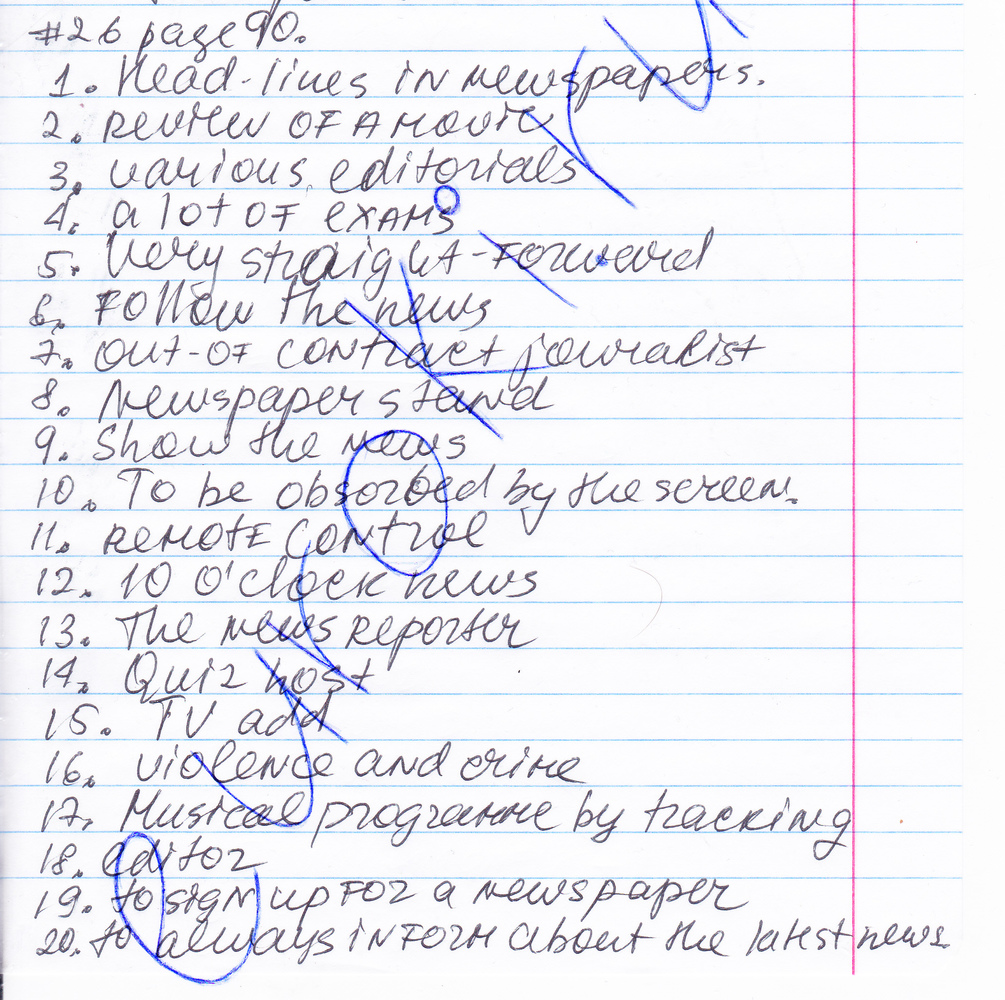 #26 page 90.
1. Head-lines in newspapers.
2. review of a movie
3. various editorials
4. a lot of exams
5. Very straight-forward
6. Follow the news
7. out-of contract journalist
8. Newspaper stand
9. Show the news
10. To be obsorbed by the screen.
11. remote control
12. 10 o'clock news
13. The news reporter
14. Quiz host
15. TV add
16. violence and crime
17. Musical programme by tracking
18. editor
19. to sign up for a newspaper
20. to always inform about the latest news